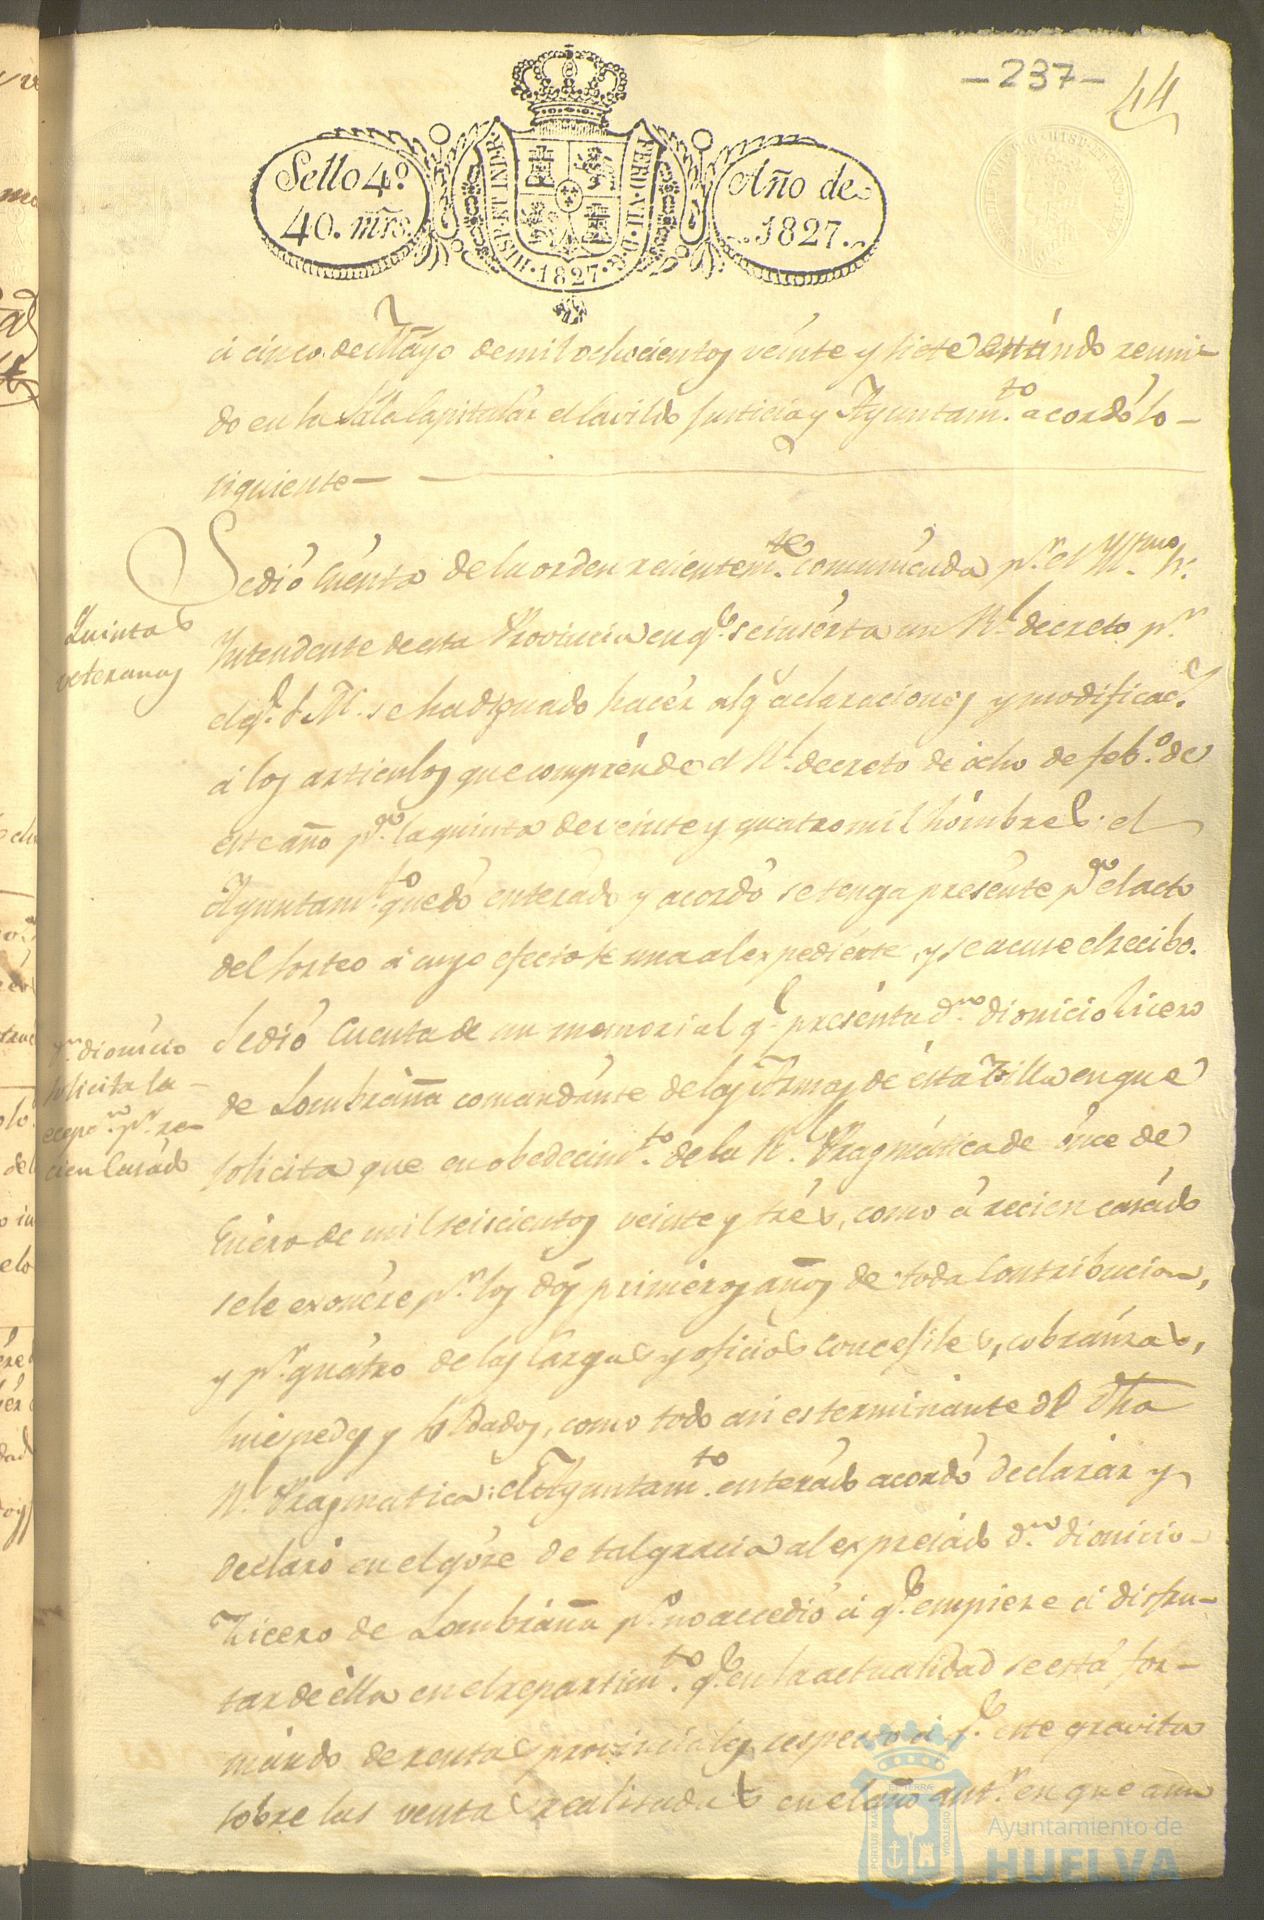 - 237 -
44
Sello 4º
40. mrs.
HISP. ET IND. R.
FERD. VII. D. G.
1827
Año de
1827.
á cinco de Mayo de mil ochocientos veinte y siete estándo reuni-
do en la Sala Capitulár el Cavildo Justicia y Ayuntam.to acordó lo
siguiente
Se dió Cuenta de la orden recientem.te comunicada p.r el Yltmo. Sr.
Quintas
veteranas
Yntendente de esta Provincia en q.e se insérta un Rl. decreto p.r
el q.e S. M. se ha dignado hacér alg.s aclaraciones y modificac.s
á los articulos que comprénde el Rl. decreto de ócho de feb.o de
este año p.a la quinta de veinte y quatro mil hómbres; el
Ayuntam.to quedó enterádo y acordó se tenga presénte p.a el acto
del sorteo á cuyo efecto se una al expediénte, y se acuse el recibo.
Se dió Cuenta de un memorial q.e presénta d.n dionicio Licero
D.n dionicio
solicita la
ecepc.on p.r re-
cien Casádo
de Lombráña comandánte de las Armas de ésta Villa en que
solicita que en obedecim.to de la Rl. Pragmática de ónce de
Enéro de mil seiscientos veinte y trés, como á recien casádo
se le exonére p.r los dós priméros años de toda Contribucion,
y p.r quátro de las Cargas y oficios Concegiles, cobránzas,
huéspedes y soldados, como todo asi es terminánte de dha
Rl. Pragmatica: el Ayuntam.to enterádo acordó declarár y
declaró en el góze de tal gracia al expresádo d.n dionicio
Licero de Lombráña p.o no accedió á q.e empieze á disfru-
tar de élla en el repartim.to q.e en la actualidad se está for-
mándo de rentas provinciáles respecto á q.e este gravita
sobre las ventas realisadas en el año ant.r en que aun
PORTUS MARIS
ET TERRAE
CUSTODIA
Ayuntamiento de
HUELVA